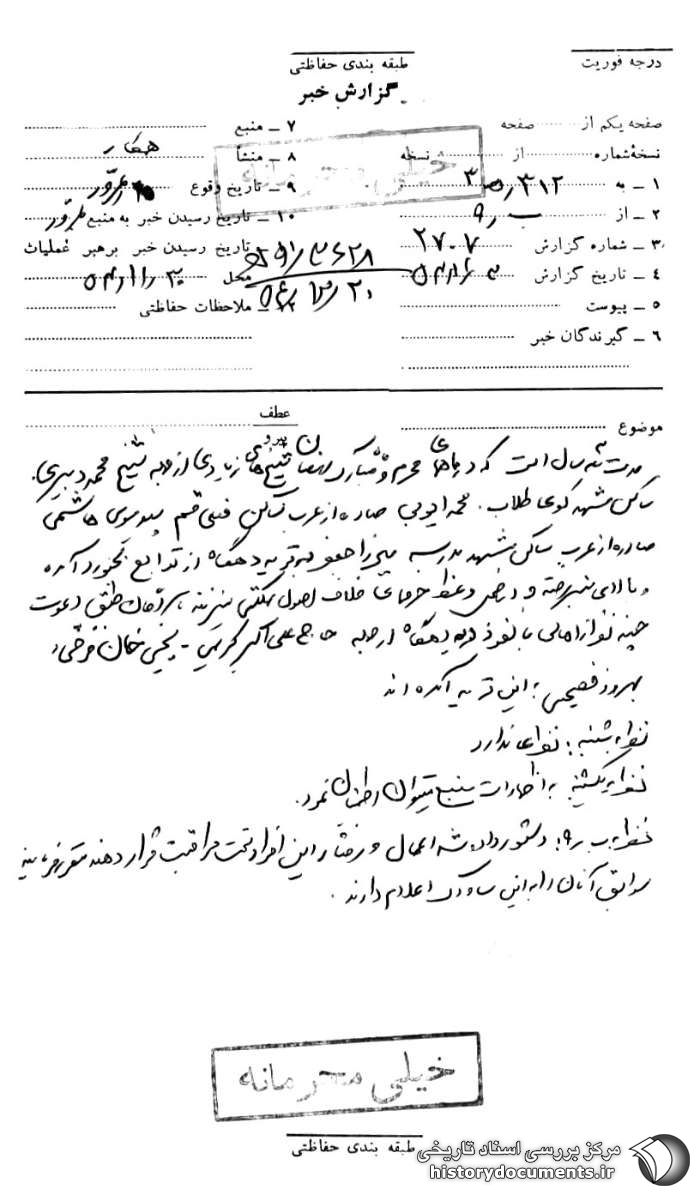 درجه فوریت
طبقه بندی حفاظتی
گزارش خبر
صفحه یکم از صفحه
نسخه شماره از نسخه
۱ ـ به ۳۱۲
۲ ـ از ۹ ب
۳ ـ شماره گزارش ۲۷۰۷
۴ ـ تاریخ گزارش
۵ ـ پیوست
۶ ـ گیرندگان خبر
۷ ـ منبع
۸ ـ منشأ همکار
۹ ـ تاریخ وقوع
۱۰ ـ تاریخ رسیدن خبر به منبع
تاریخ رسیدن خبر برهبر عملیات
محل
ملاحظات حفاظتی
خیلی محرمانه
موضوع
عطف
مدت سه سال است که در ماه های محرم و مبارک رمضان شیخ های زیادی از جمله شیخ محمد دبیری
ساکن مشهد کوی طلاب. محمد ایوبی صادره از عرب ساکن فعلی قم سید موسوی هاشمی
صادره از عرب ساکن مشهد مدرسه میرزا جعفر به قریه دهگاه از توابع بجنورد آمده
و بالای منبر رفته و ضمن وعظ حرفهای خلاف اصول مملکتی میزنند دعوت
چند نفر از اهالی با نفوذ دهگاه از جمله حاج علی اکبر کریمی - یحیی خان فرخی
بهروز فصیحی به این قریه آمده اند
نظریه شنبه: نظری ندارد
نظریه یکشنبه به اظهارات منبع میتوان اطمینان نمود.
نظریه ۹ ب: دستور داده شد اعمال و رفتار این افراد تحت مراقبت قرار دهند مقرر فرمایند
سوابق آنان را به این ساواک اعلام دارند.
خیلی محرمانه
طبقه بندی حفاظتی
مرکز بررسی اسناد تاریخی
historydocuments.ir